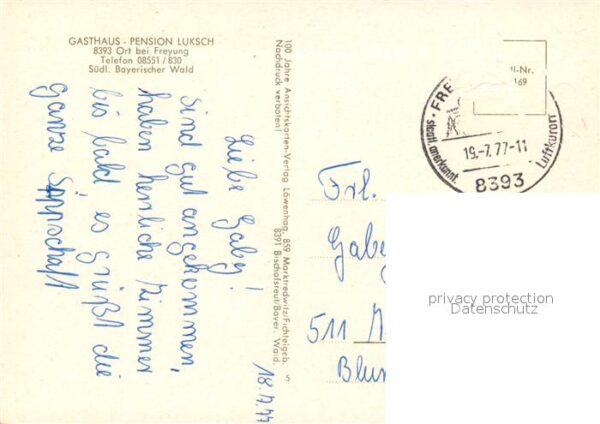 GASTHAUS - PENSION LUKSCH
8393 Ort bei Freyung
Telefon 08551 / 830
Südl. Bayerischer Wald
18.7.77
Liebe Gaby!
Sind gut angekommen,
haben herrliche Zimmer
bis bald, es grüßt die
ganze Sippschaft
100 Jahre Ansichtskarten-Verlag Löwenhag, 859 Marktredwitz/Fichtelgeb.
Nachdruck verboten! 8391 Bischofsreut/Bayer. Wald.
5
l-Nr.
169
FRE
19.-7.77-11
staatl. anerkannt.
Luftkurort
8393
Frl.
Gaby
511
Blum
privacy protection
Datenschutz